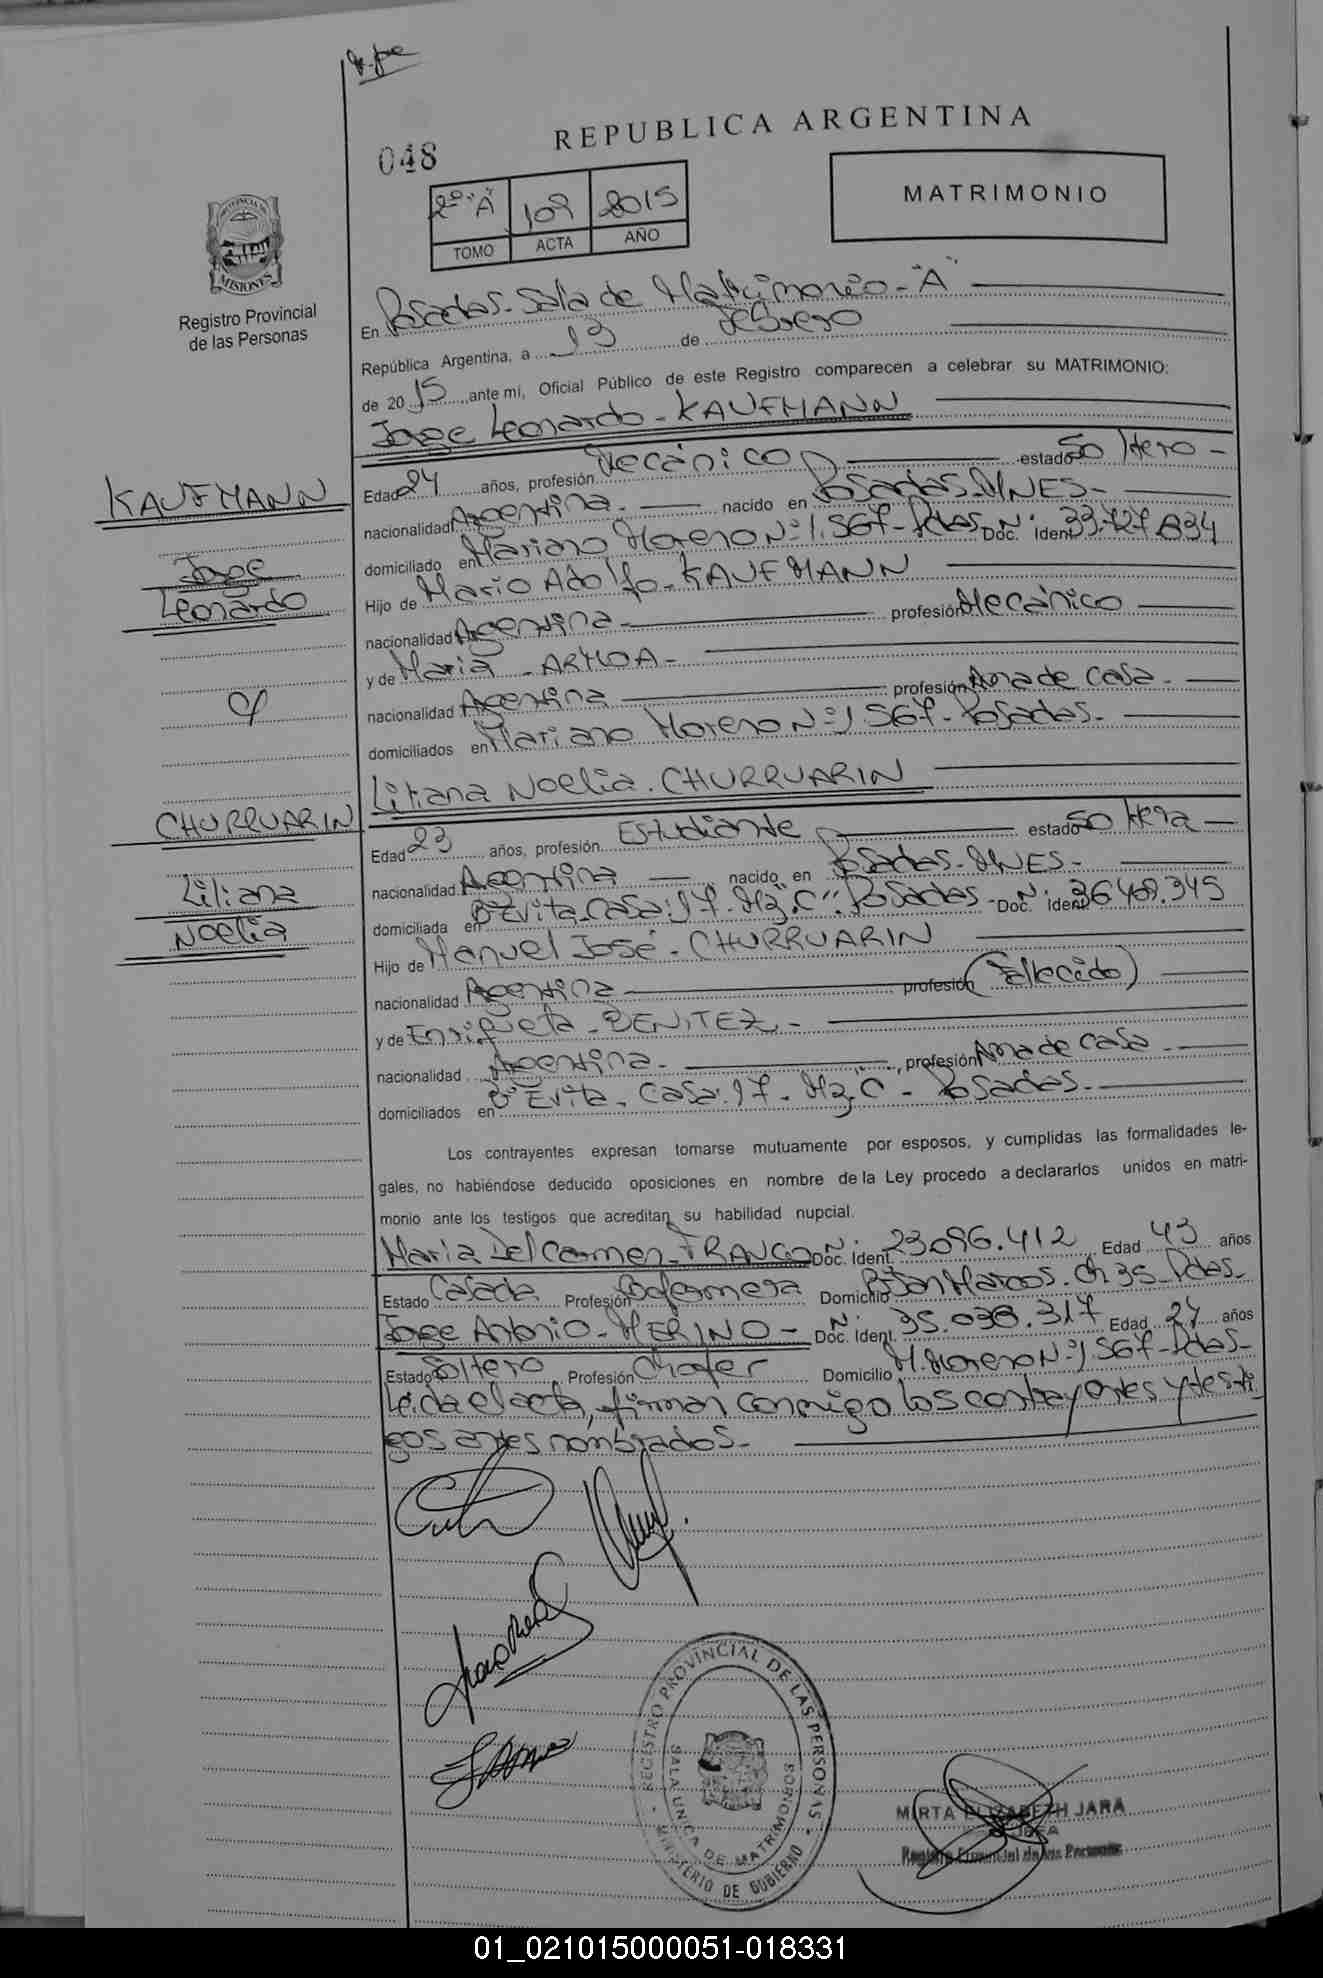 048
REPUBLICA ARGENTINA
2º "A" 109 2015
TOMO ACTA AÑO
MATRIMONIO
PROVINCIA DE
MISIONES
Registro Provincial
de las Personas
En Posadas-Sala de Matrimonio-"A"
República Argentina, a 13 de febrero
de 2015 ante mi, Oficial Público de este Registro comparecen a celebrar su MATRIMONIO:
Jorge Leonardo-KAUFMANN
KAUFMANN
Jorge
Leonardo
Edad 24 años, profesión Mecánico estado Soltero-
nacionalidad Argentina.- nacido en Posadas.MNES-
domiciliado en Mariano Moreno Nº 1.567-Pdas Doc. Nº Ident 33.727.834
Hijo de Mario Adolfo-KAUFMANN
nacionalidad Argentina- profesión Mecánico
y de Maria -ARMOA-
nacionalidad Argentina profesión Ama de Casa-
domiciliados en Mariano Moreno Nº 1.567-Posadas.-
C/
Liliana Noelia.CHURRUARIN
CHURRUARIN
Liliana
Noelia
Edad 23 años, profesión Estudiante estado Soltera
nacionalidad Argentina nacido en Posadas-MNES-
domiciliada en Bº Evita-Casa:17-Mz."C"-Posadas - Doc. Nº Ident 36.469.345
Hijo de Manuel José-CHURRUARIN
nacionalidad Argentina profesión (Fallecido)
y de Enriqueta-BENITEZ-
nacionalidad Argentina.- profesión Ama de Casa-
domiciliados en Bº Evita-Casa:17-Mz.C-Posadas.-
Los contrayentes expresan tomarse mutuamente por esposos, y cumplidas las formalidades le-
gales, no habiéndose deducido oposiciones en nombre de la Ley procedo a declararlos unidos en matri-
monio ante los testigos que acreditan su habilidad nupcial.
Maria Del Carmen-FRANCO Doc. Nº Ident. 23.096.412 Edad 43 años
Estado Casada Profesión Enfermera Domicilio Bº San Marcos.Ch 35-Pdas-
Jorge Antonio-MERINO- Doc. Nº Ident. 35.038.317 Edad 24 años
Estado Soltero Profesión Chofer Domicilio M.Moreno Nº 1.567-Pdas-
Leída el acta, firman conmigo los contrayentes y testi
gos antes nombrados-
REGISTRO PROVINCIAL DE LAS PERSONAS
MINISTERIO DE GOBIERNO
SALA UNICA DE MATRIMONIOS
MIRTA ELIZABETH JARA
JEFA
Registro Provincial de las Personas
01_021015000051-018331